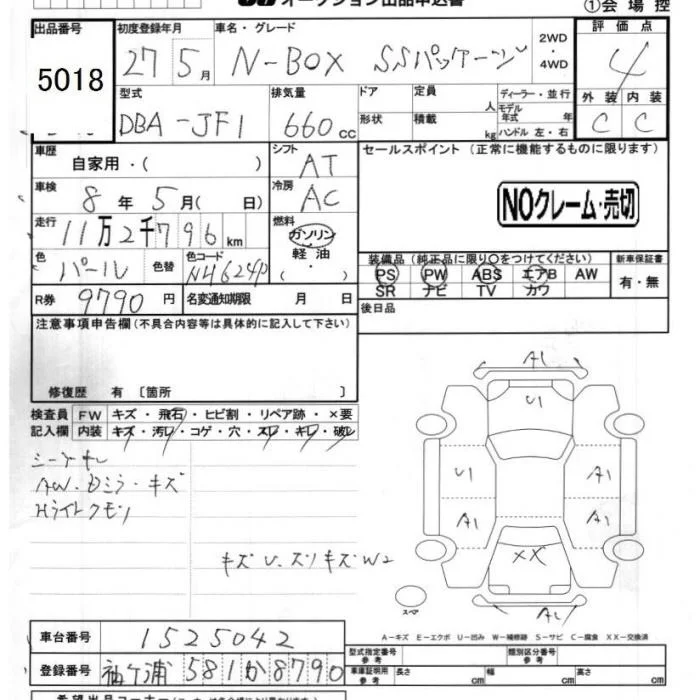 オークション出品申込書
①会場控
出品番号 初度登録年月 車名・グレード 評価点
5018 27 5月 N-BOX SSパッケージ 2WD・4WD 4
型式 排気量 ドア 定員 人 ディーラー・並行 外装 内装
DBA-JF1 660cc 形状 積載 kg モデル年式 年 ハンドル 左・右 C C
車歴 自家用・( ) シフト AT セールスポイント (正常に機能するものに限ります)
車検 8年5月( 日) 冷房 AC NOクレーム・売切
走行 11万2千796km 燃料 ガソリン
軽油
( ・ )
色 パール 色替 色コード NH624P
装備品(純正品に限り○をつけてください) 新車保証書
PS PW ABS エアB AW 有・無
SR ナビ TV カワ
R券 9790円 名変通知期限 月 日 後日品
注意事項申告欄(不具合内容等は具体的に記入して下さい)
修復歴 有〔箇所 〕
検査員 FW キズ・飛石・ヒビ割・リペア跡・×要
記入欄 内装 キズ・汚レ・コゲ・穴・スレ・キレ・破レ
AW.ドミラ・キズ
Hライトクモリ
キズ U.スリキズ W2
A1
U1
U1 A1
A1 A1
XX
スペア
A1
A-キズ E-エクボ U-凹み W-補修跡 S-サビ C-腐食 XX-交換済
車台番号 1525042
登録番号 袖ケ浦 581か8790
型式指定番号 参考 類別区分番号 参考
車庫証明用 参考 長さ cm 幅 cm 高さ cm